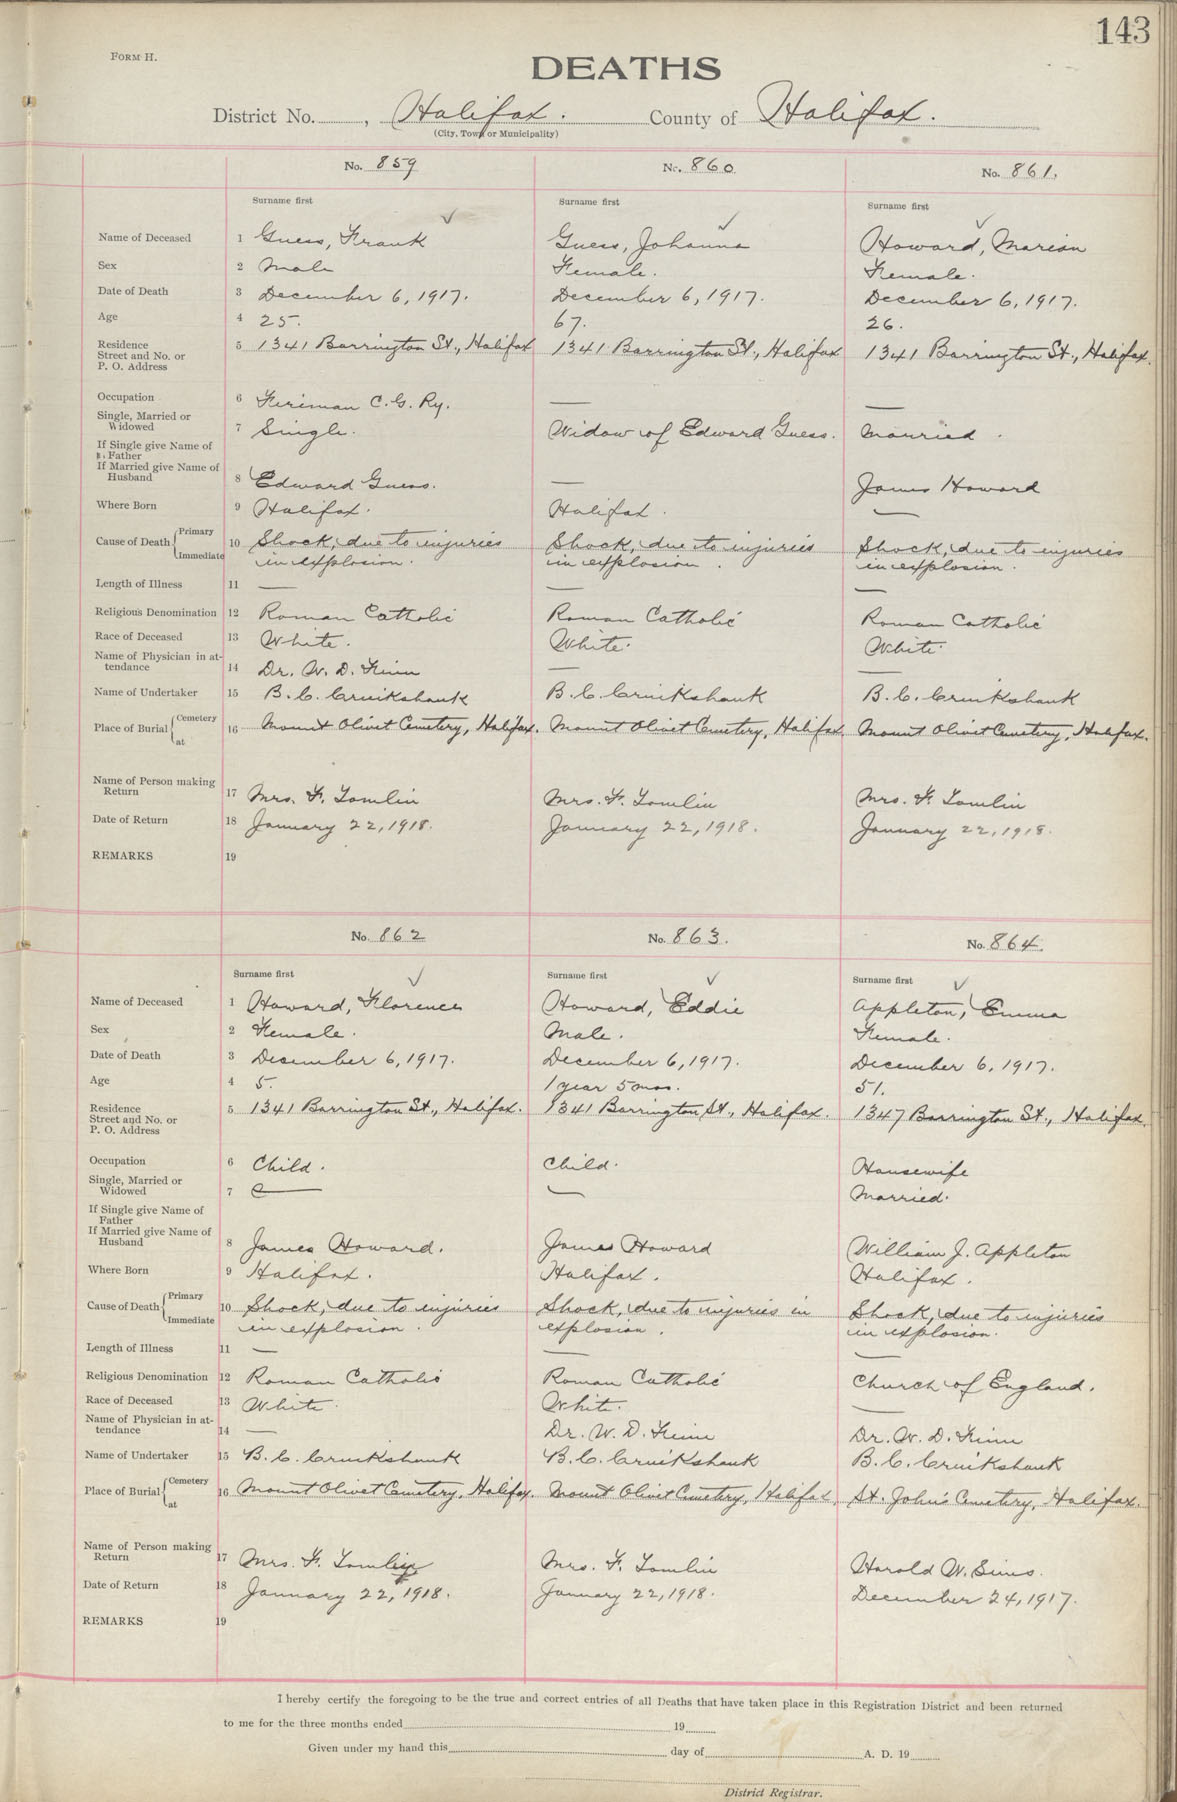 143
FORM H.
DEATHS
District No. , Halifax. County of Halifax.
(City, Town or Municipality)
No. 859 No. 860 No. 861.
Surname first Surname first Surname first
Name of Deceased 1 Guess, Frank Guess, Johanna Howard, Marion
Sex 2 Male Female. Female.
Date of Death 3 December 6, 1917. December 6, 1917. December 6, 1917.
Age 4 25. 67. 26.
Residence 5 1341 Barrington St., Halifax 1341 Barrington St., Halifax 1341 Barrington St., Halifax.
Street and No. or
P. O. Address
Occupation 6 Fireman C. G. Ry. — —
Single, Married or
Widowed 7 Single. Widow of Edward Guess. Married.
If Single give Name of
Father
If Married give Name of
Husband 8 Edward Guess. — James Howard
Where Born 9 Halifax. Halifax. —
Cause of Death { Primary
Immediate 10 Shock, due to injuries Shock, due to injuries Shock, due to injuries
in explosion. in explosion. in explosion.
Length of Illness 11 — — —
Religious Denomination 12 Roman Catholic Roman Catholic Roman Catholic
Race of Deceased 13 White. White. White.
Name of Physician in at-
tendance 14 Dr. W. D. Finn — —
Name of Undertaker 15 B. C. Cruikshank B. C. Cruikshank B. C. Cruikshank
Place of Burial { Cemetery
at 16 Mount Olivet Cemetery, Halifax. Mount Olivet Cemetery, Halifax. Mount Olivet Cemetery, Halifax.
Name of Person making
Return 17 Mrs. F. Tomlin Mrs. F. Tomlin Mrs. F. Tomlin
Date of Return 18 January 22, 1918. January 22, 1918. January 22, 1918.
REMARKS 19
No. 862 No. 863. No. 864.
Surname first Surname first Surname first
Name of Deceased 1 Howard, Florence Howard, Eddie Appleton, Emma
Sex 2 Female. Male. Female.
Date of Death 3 December 6, 1917. December 6, 1917. December 6, 1917.
Age 4 5. 1 year 5 mos. 51.
Residence 5 1341 Barrington St., Halifax. 1341 Barrington St., Halifax. 1347 Barrington St., Halifax.
Street and No. or
P. O. Address
Occupation 6 Child. Child. Housewife
Single, Married or
Widowed 7 — — Married.
If Single give Name of
Father
If Married give Name of
Husband 8 James Howard. James Howard William J. Appleton
Where Born 9 Halifax. Halifax. Halifax.
Cause of Death { Primary
Immediate 10 Shock, due to injuries Shock, due to injuries in Shock, due to injuries
in explosion. explosion. in explosion.
Length of Illness 11 — — —
Religious Denomination 12 Roman Catholic Roman Catholic Church of England.
Race of Deceased 13 White. White. —
Name of Physician in at-
tendance 14 — Dr. W. D. Finn Dr. W. D. Finn
Name of Undertaker 15 B. C. Cruikshank B. C. Cruikshank B. C. Cruikshank
Place of Burial { Cemetery
at 16 Mount Olivet Cemetery, Halifax. Mount Olivet Cemetery, Halifax. St. John's Cemetery, Halifax.
Name of Person making
Return 17 Mrs. F. Tomlin Mrs. F. Tomlin Harold W. Sims.
Date of Return 18 January 22, 1918. January 22, 1918. December 24, 1917.
REMARKS 19
I hereby certify the foregoing to be the true and correct entries of all Deaths that have taken place in this Registration District and been returned
to me for the three months ended 19
Given under my hand this day of A. D. 19
District Registrar.